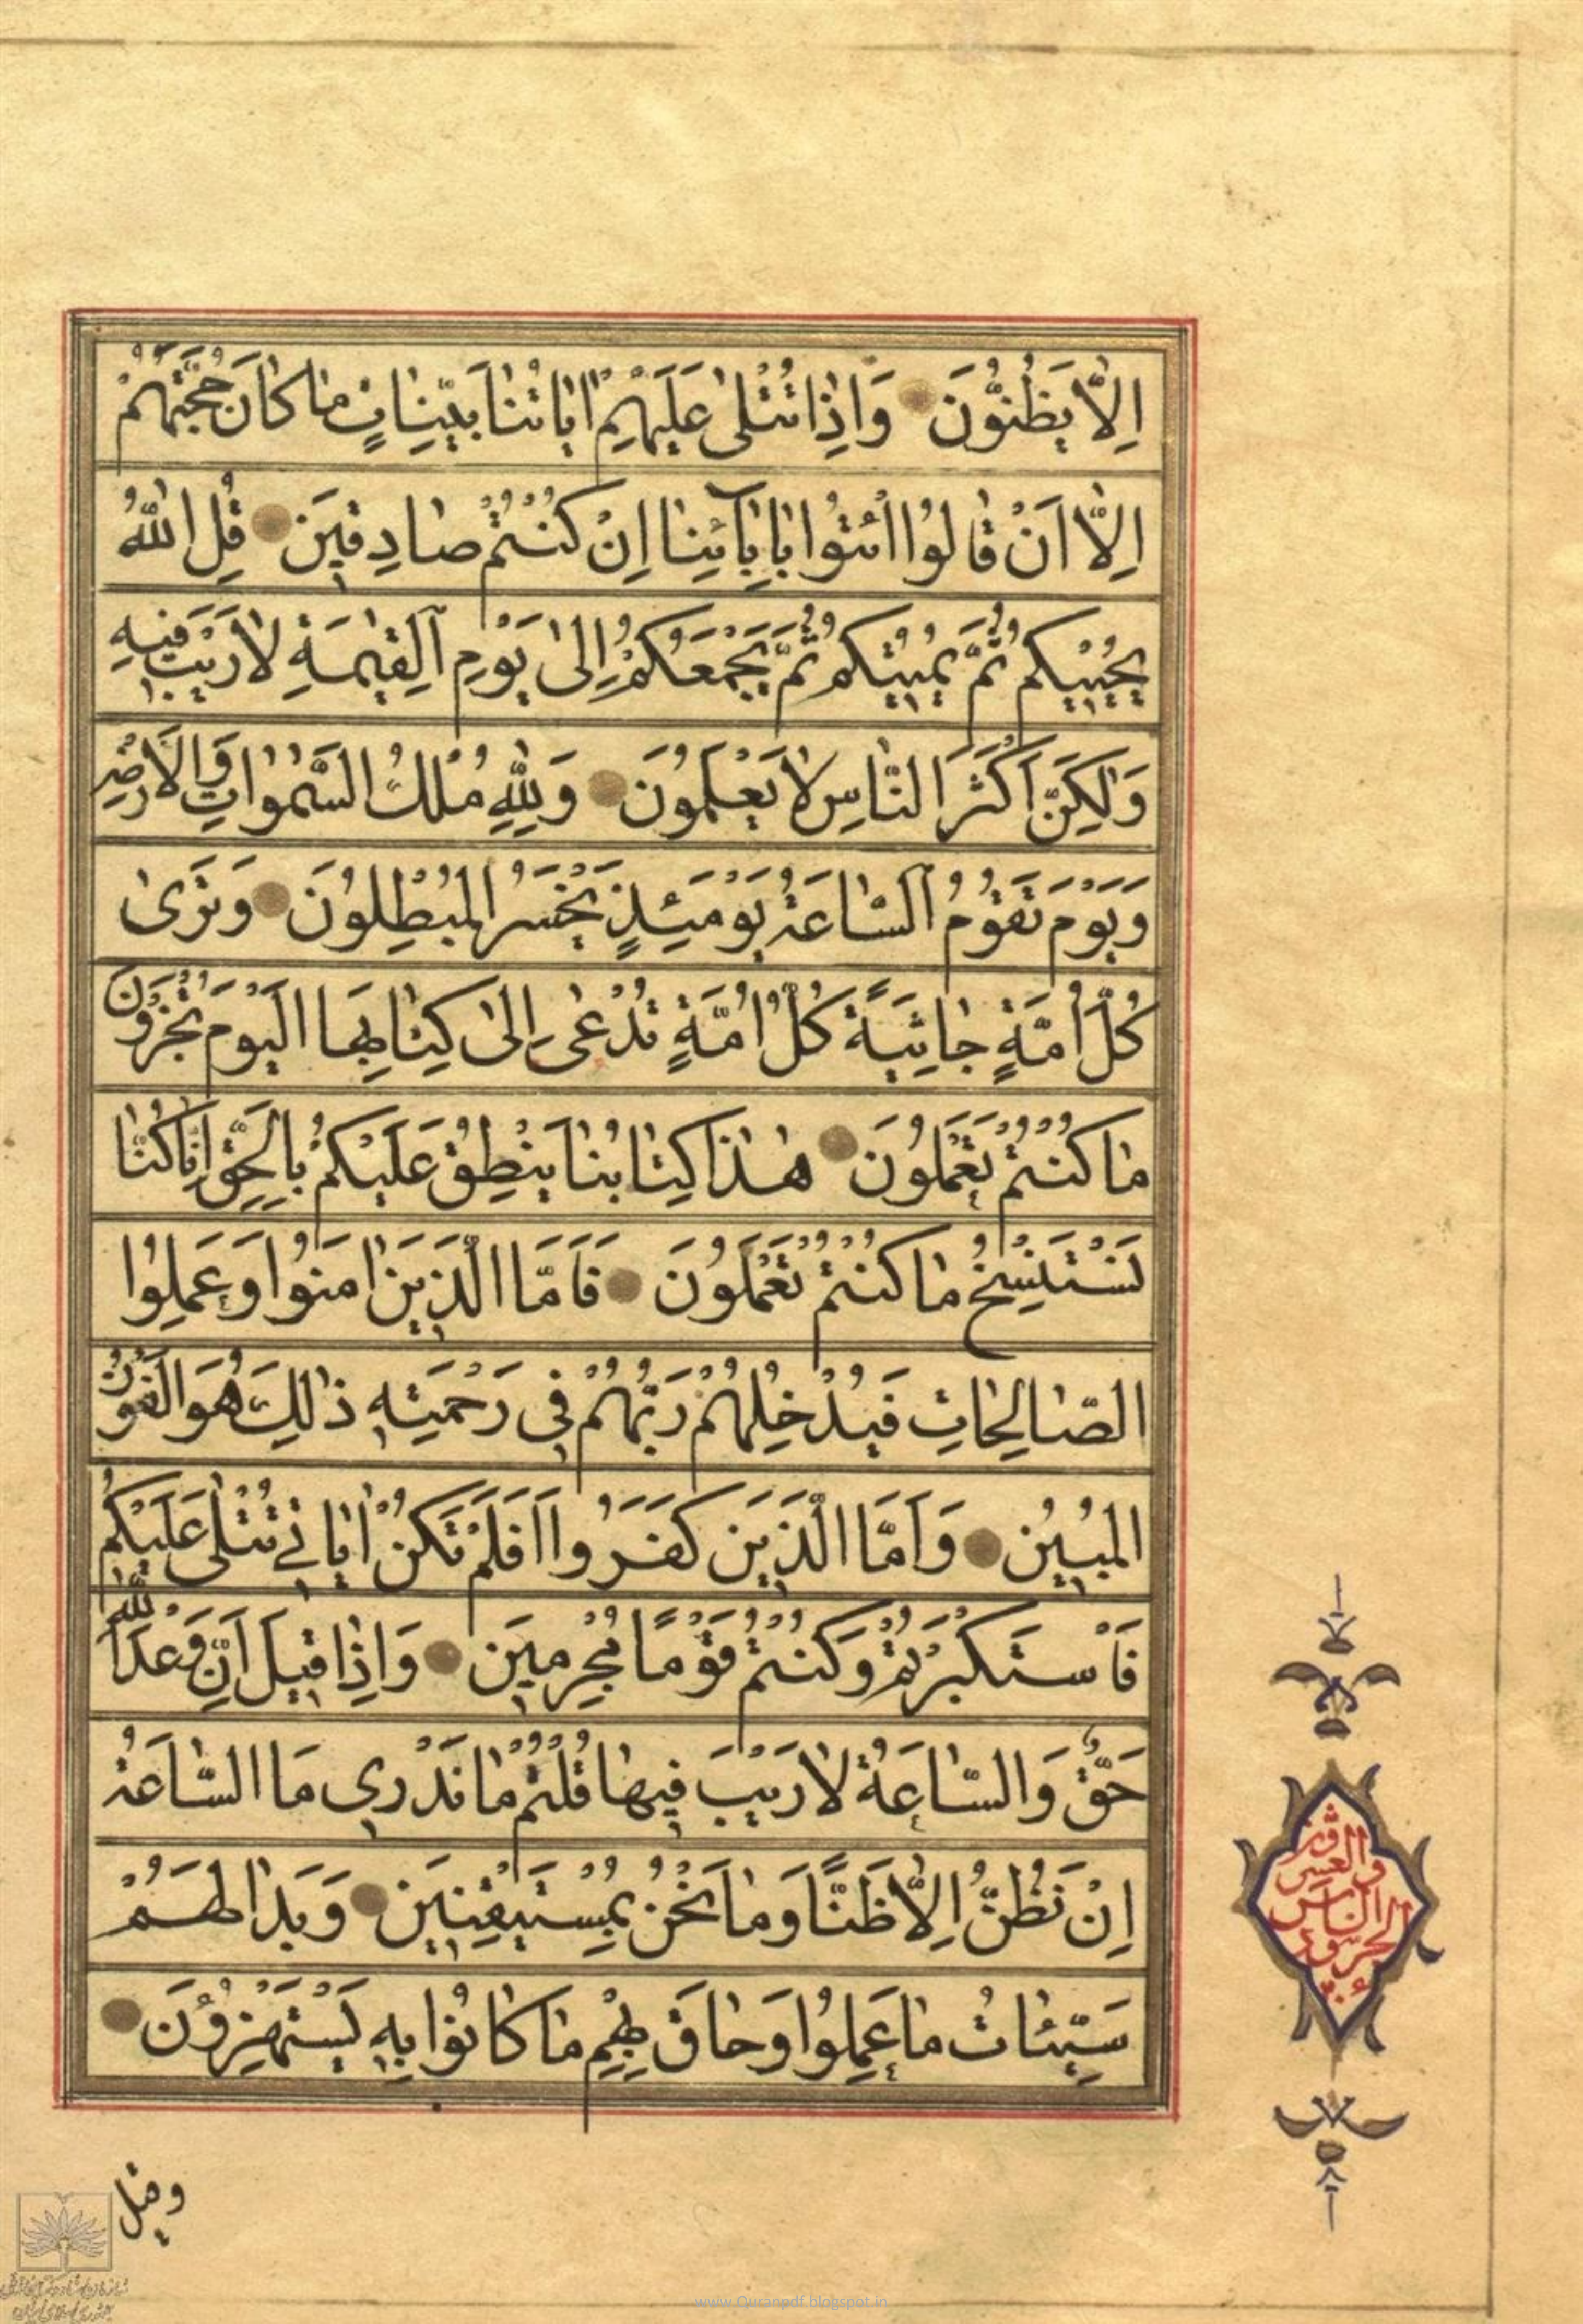 اِلّا يَظُنُّونَ وَاِذا تُتْلىٰ عَلَيْهِمْ اٰياتُنا بَيِّناتٍ ما كانَ حُجَّتَهُمْ
اِلّا اَنْ قالُوا ائْتُوا بِاٰبائِنا اِنْ كُنْتُمْ صادِقينَ قُلِ اللّٰهُ
يُحْييكُمْ ثُمَّ يُميتُكُمْ ثُمَّ يَجْمَعُكُمْ اِلىٰ يَوْمِ الْقِيٰمَةِ لا رَيْبَ فيهِ
وَلٰكِنَّ اَكْثَرَ النّاسِ لا يَعْلَمُونَ وَلِلّٰهِ مُلْكُ السَّمٰواتِ وَالْاَرْضِ
وَيَوْمَ تَقُومُ السّاعَةُ يَوْمَئِذٍ يَخْسَرُ الْمُبْطِلُونَ وَتَرىٰ
كُلَّ اُمَّةٍ جاثِيَةً كُلُّ اُمَّةٍ تُدْعىٰ اِلىٰ كِتابِهَا الْيَوْمَ تُجْزَوْنَ
ما كُنْتُمْ تَعْمَلُونَ هٰذا كِتابُنا يَنْطِقُ عَلَيْكُمْ بِالْحَقِّ اِنّا كُنّا
نَسْتَنْسِخُ ما كُنْتُمْ تَعْمَلُونَ فَاَمَّا الَّذينَ اٰمَنُوا وَعَمِلُوا
الصّالِحاتِ فَيُدْخِلُهُمْ رَبُّهُمْ في رَحْمَتِهِ ذٰلِكَ هُوَ الْفَوْزُ
الْمُبينُ وَاَمَّا الَّذينَ كَفَرُوا اَفَلَمْ تَكُنْ اٰياتي تُتْلىٰ عَلَيْكُمْ
فَاسْتَكْبَرْتُمْ وَكُنْتُمْ قَوْمًا مُجْرِمينَ وَاِذا قيلَ اِنَّ وَعْدَ اللّٰهِ
حَقٌّ وَالسّاعَةُ لا رَيْبَ فيها قُلْتُمْ ما نَدْري مَا السّاعَةُ
اِنْ نَظُنُّ اِلّا ظَنًّا وَما نَحْنُ بِمُسْتَيْقِنينَ وَبَدا لَهُمْ
سَيِّئاتُ ما عَمِلُوا وَحاقَ بِهِمْ ما كانُوا بِهِ يَسْتَهْزِؤُنَ
وقيل
www.Quranpdf.blogspot.in